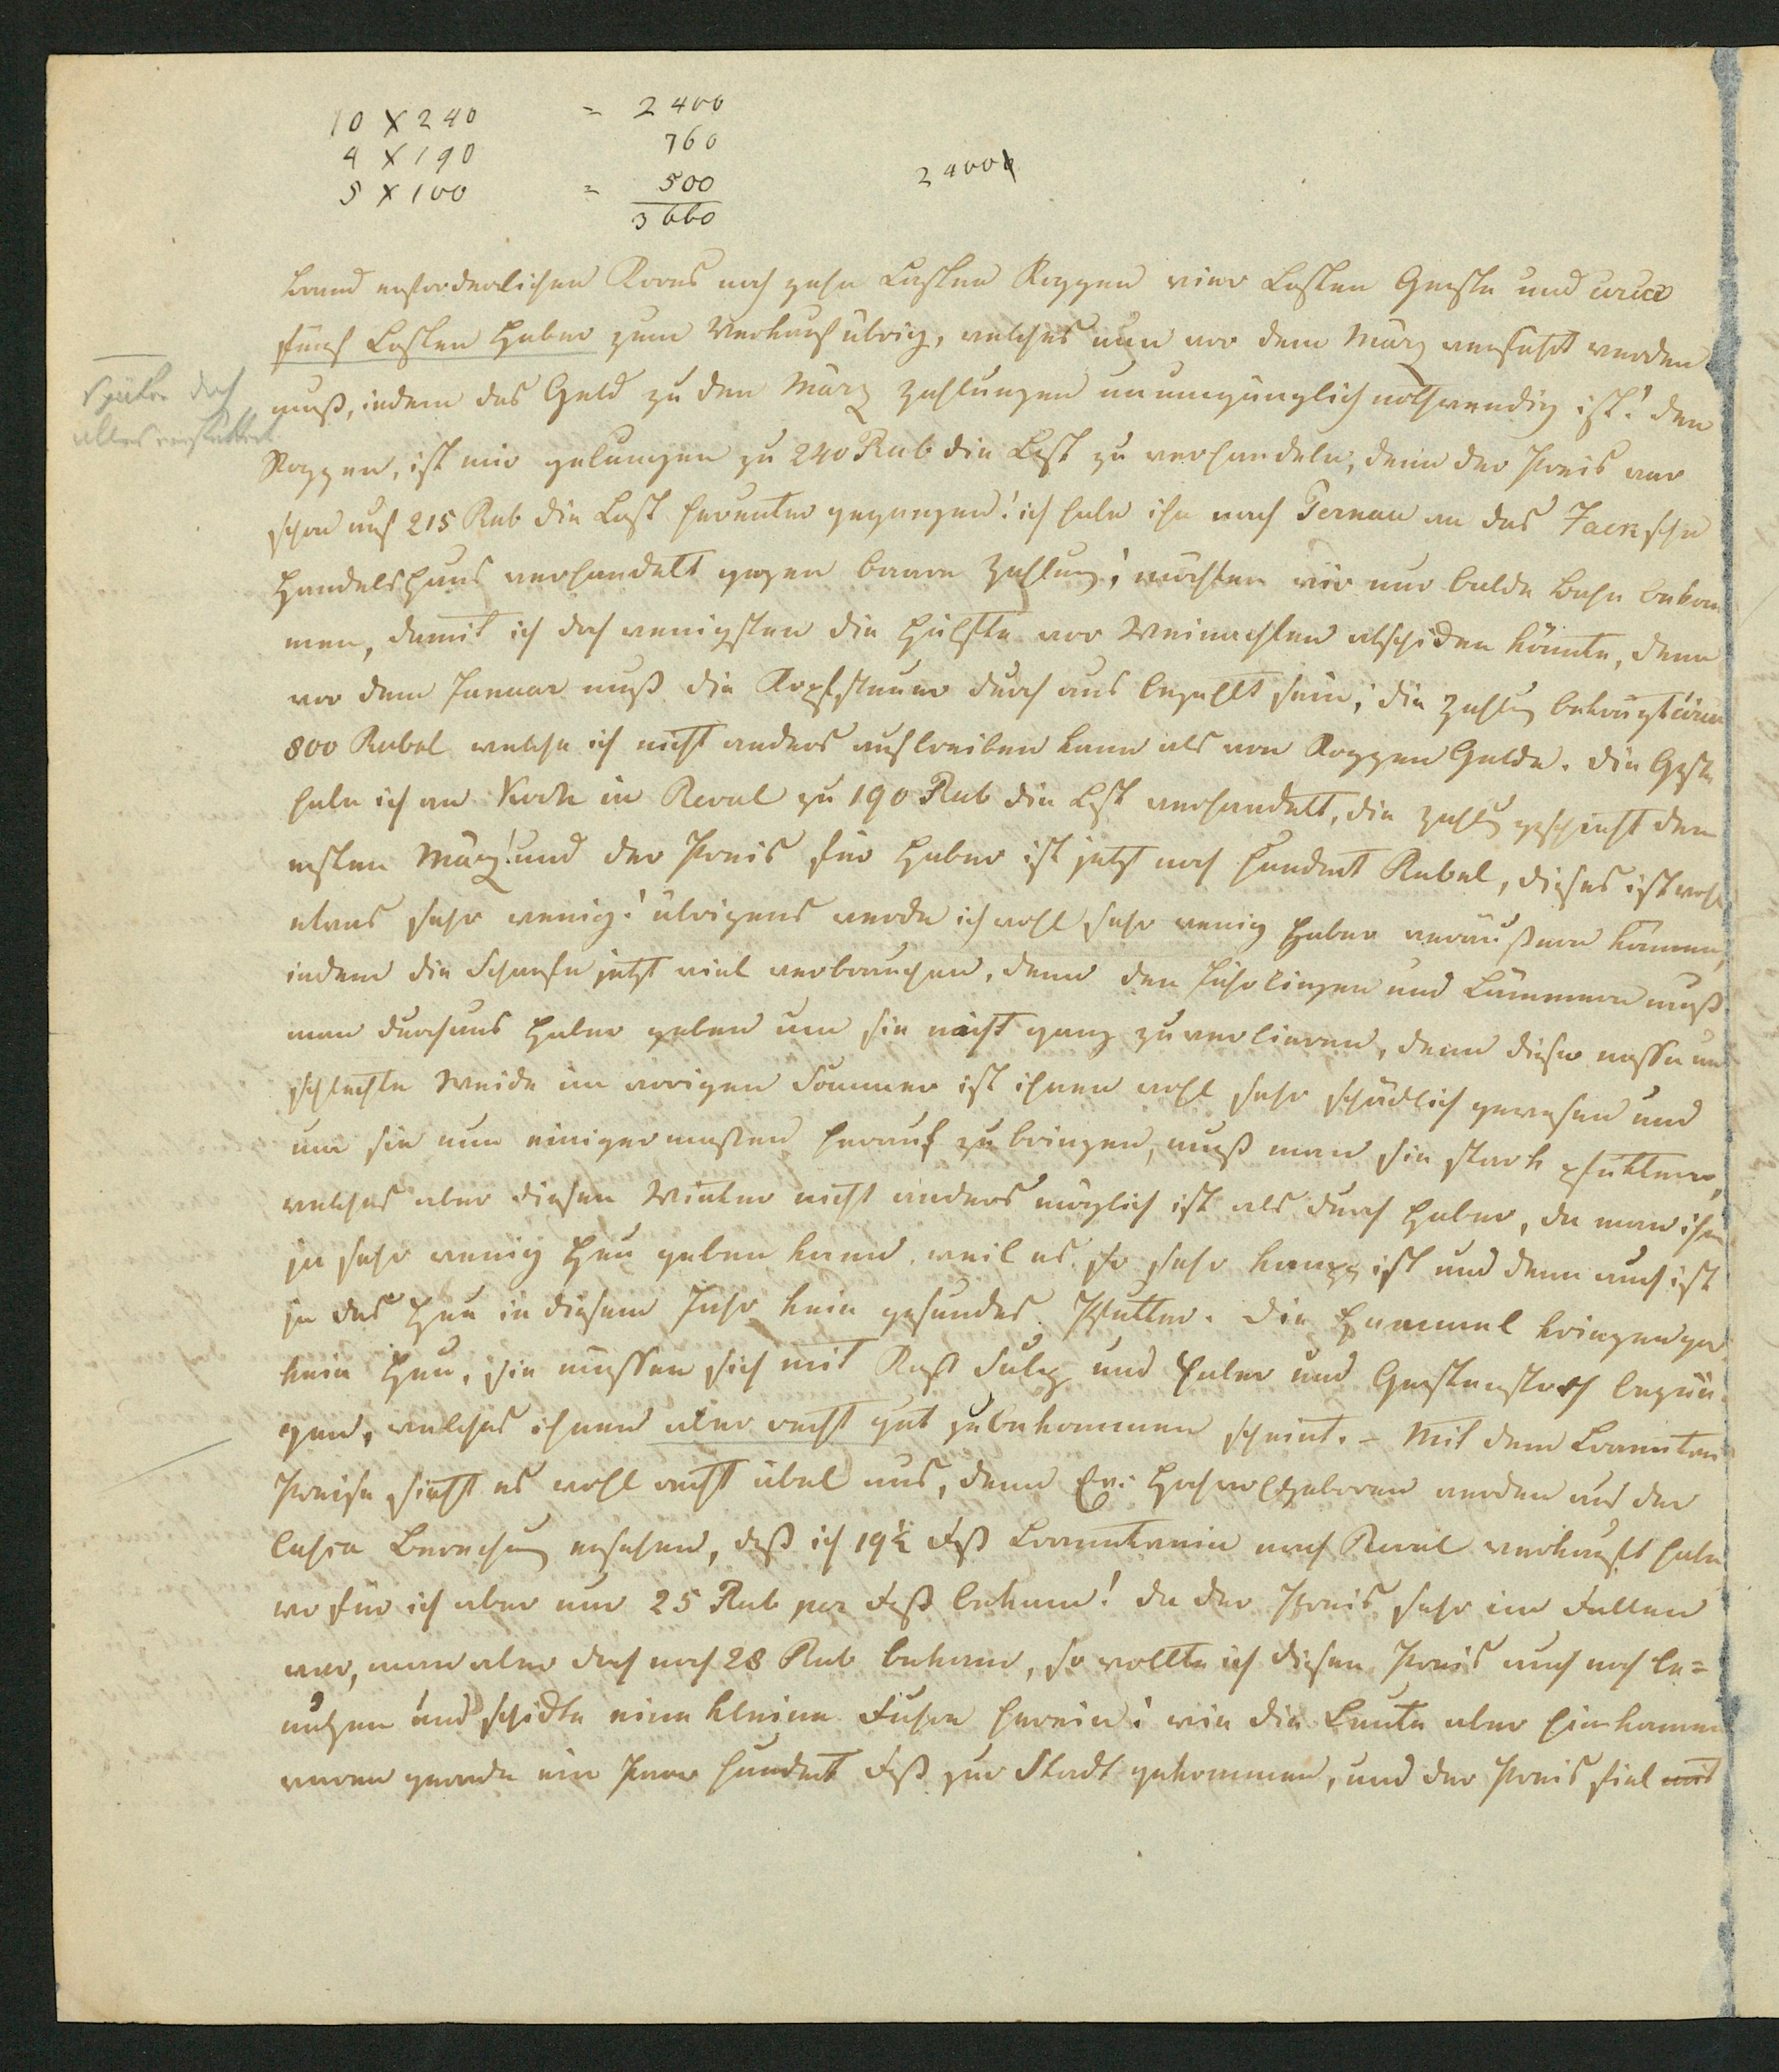 10 X 240 = 2400
4 X 190 760
5 X 100 = 500
3660
24000
brand erforderlichen Korns noch zehn Lasten Roggen vier Lasten Gerste und circa
fünf Lasten Haber zum Verkauf übrig, welches nun vor dem März verführt werden
muß, indem das Geld zu den März Zahlungen unumgänglich nothwendig ist! den
Roggen, ist mir gelungen zu 240 Rub die Last zu verhandeln, denn der Preis war
schon auf 215 Rub die Last herunter gegangen! ich habe ihn nach Pernau an das Jacksche
Handelshaus verhandelt gegen baare Zahlung! möchten wir nur balde Bahn bekom
men, damit ich doch wenigsten die Hälfte vor Weinachten abschicken könnte, denn
vor dem Januar muß die Kopfsteuer durch aus bezahlt sein, die Zahlung beträgt
800 Rubel welche ich nicht anders auftreiben kann als von Roggen Gelde. Die Gerste
habe ich an Koch in Reval zu 190 Rub die Last verhandelt, die Zahlung geschieht den
ersten März! und der Preis für Haber ist jetzt noch hundert Rubel, dieses ist wohl
etwas sehr wenig! übrigens werde ich wohl sehr wenig Haber veräußern können,
indem die Schaafe jetzt viel verbrauchen, denn den Jährlingen und Lämmern muß
man durchaus Haber geben um sie nicht ganz zu verlieren, denn diese nasse und
schlechte Weide im vorigen Sommer ist ihnen wohl sehr schädlich gewesen und
um sie nun einigermaßen herauf zu bringen, muß man sie stark pfuttern,
welches aber diesen Winter nicht anders möglich ist als durch Haber, da man ihnen
ja sehr wenig Heu geben kann, weil es so sehr knapp ist und denn auch ist
ja das Heu in diesem Jahr kein gesundes Pfutter. Die Hammel kriegen gar
kein Heu, sie müssen sich mit Salz und Haber und Gerstenstroh begnü
gen, welches ihnen aber recht gut zu bekommen scheint. – Mit dem Branntwein
Preise sieht es wohl recht übel aus, denn Ew: Hochwohlgeboren werden aus der
Berechnung ersehen, daß ich 19½ Faß Branntwein nach Reval verkauft habe
wo für ich aber nur 25 Rub per Faß bekam! da der Preis sehr im Fallen
war, man aber doch noch 28 Rub bekam, so wollte ich diesen Preis auch noch be=
nutzen und schickte eine kleine Fuhre herein! wie die Leute aber hin kamen
waren gerade ein Paar hundert Faß zur Stadt gekommen, und der Preis fiel
Später doch
alles